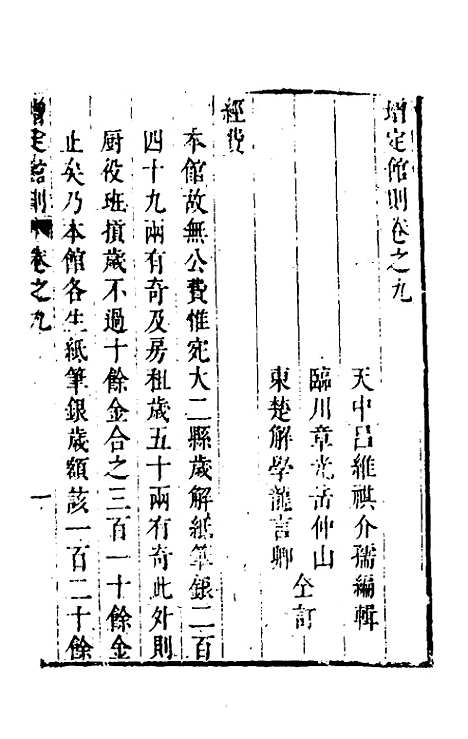 增定館則卷之九
天中呂維祺介孺編輯
臨川章光岳仲山
東楚解學龍言卿
仝訂
經費
本館故無公費惟宛大二縣歲解紙筆銀二百
四十九兩有奇及房租歲五十兩有奇此外則
厨役班損歲不過十餘金合之三百一十餘金
止矣乃本館各生紙筆銀歲額該一百二十餘
增定館則 卷之九 一